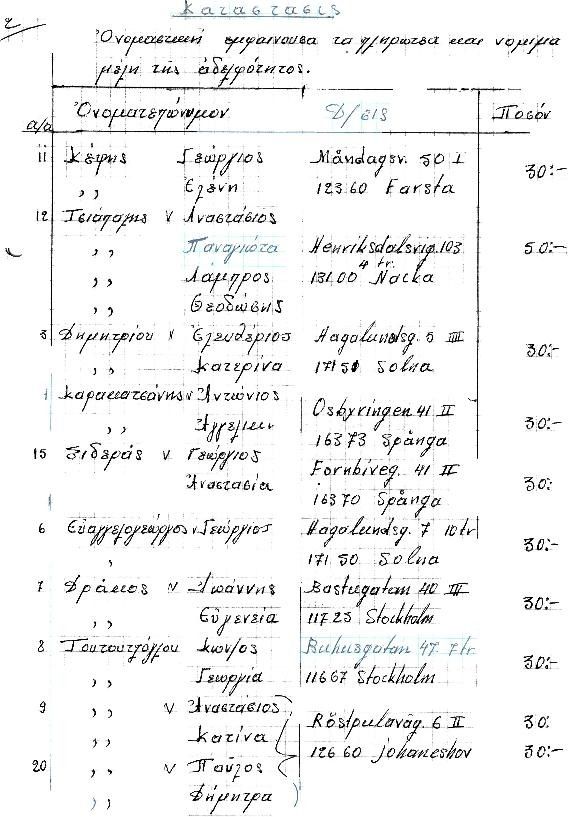 Καταστασις
Ὀνομαστική εμφαινουσα τα πληρωτεα και νομιμα
μελη της ἀδελφότητος.
α/α Ὀνοματεπώνυμον Δ/σις Ποσόν
11 Κέφης Γεώργιος Måndagsv. 50 I 30:-
,, Ελένη 123 60 Farsta
12 Τσιάπαρης V Ἀναστάσιος
,, Παναγιότα Henriksdalsvig. 103 50:-
,, Λάμπρος 131 00 4 tr. Nacka
,, Θεοδώσης
3 Δημητρίου V Ἐλευθέριος Hagalundsg. 5 III 30:-
,, Κατερίνα 171 50 Solna
Καρακατσάνης V Ἀντώνιος Osbyringen 41 II
,, Ἀγγελικη 163 73 Spånga 30:-
15 Ξιδεράς V Γεώργιος Fornbiveg. 41 II
Ἀναστασία 163 70 Spånga 30:
6 Εὐαγγελογεώργος V Γεώργιος Hagalundsg. 7 10tr
, 171 50 Solna 30:-
7 Δράκος V Ἰωάννης Bastugatan 40 III 30:-
,, Εὐγενεία 117 25 Stockholm
8 Τουτουτζόγλου Κων/ος Buhusgatan 47 7tr 30:-
,, Γεωργία 116 67 Stockholm
9 ,, V Ἀναστάσιος Röstpulavåg. 6 II 30:
,, Κατίνα 126 60 Johaneshov 30:-
20 ,, V Παῦλος
,, Δήμητρα